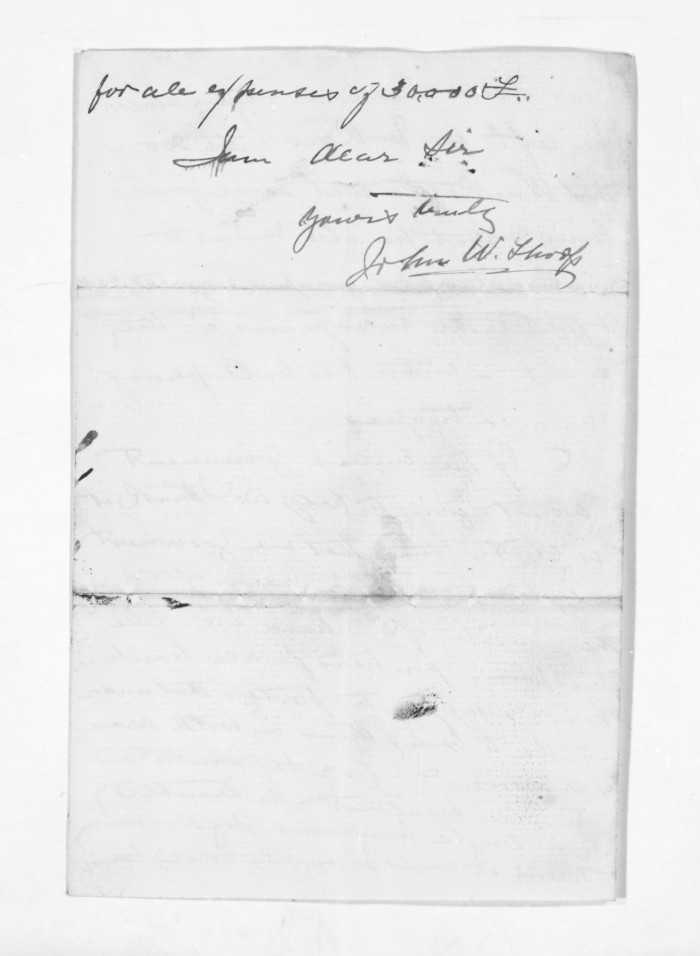 for all expenses of 30,000 £.
I am dear Sir
yours truly
John W. Thorp